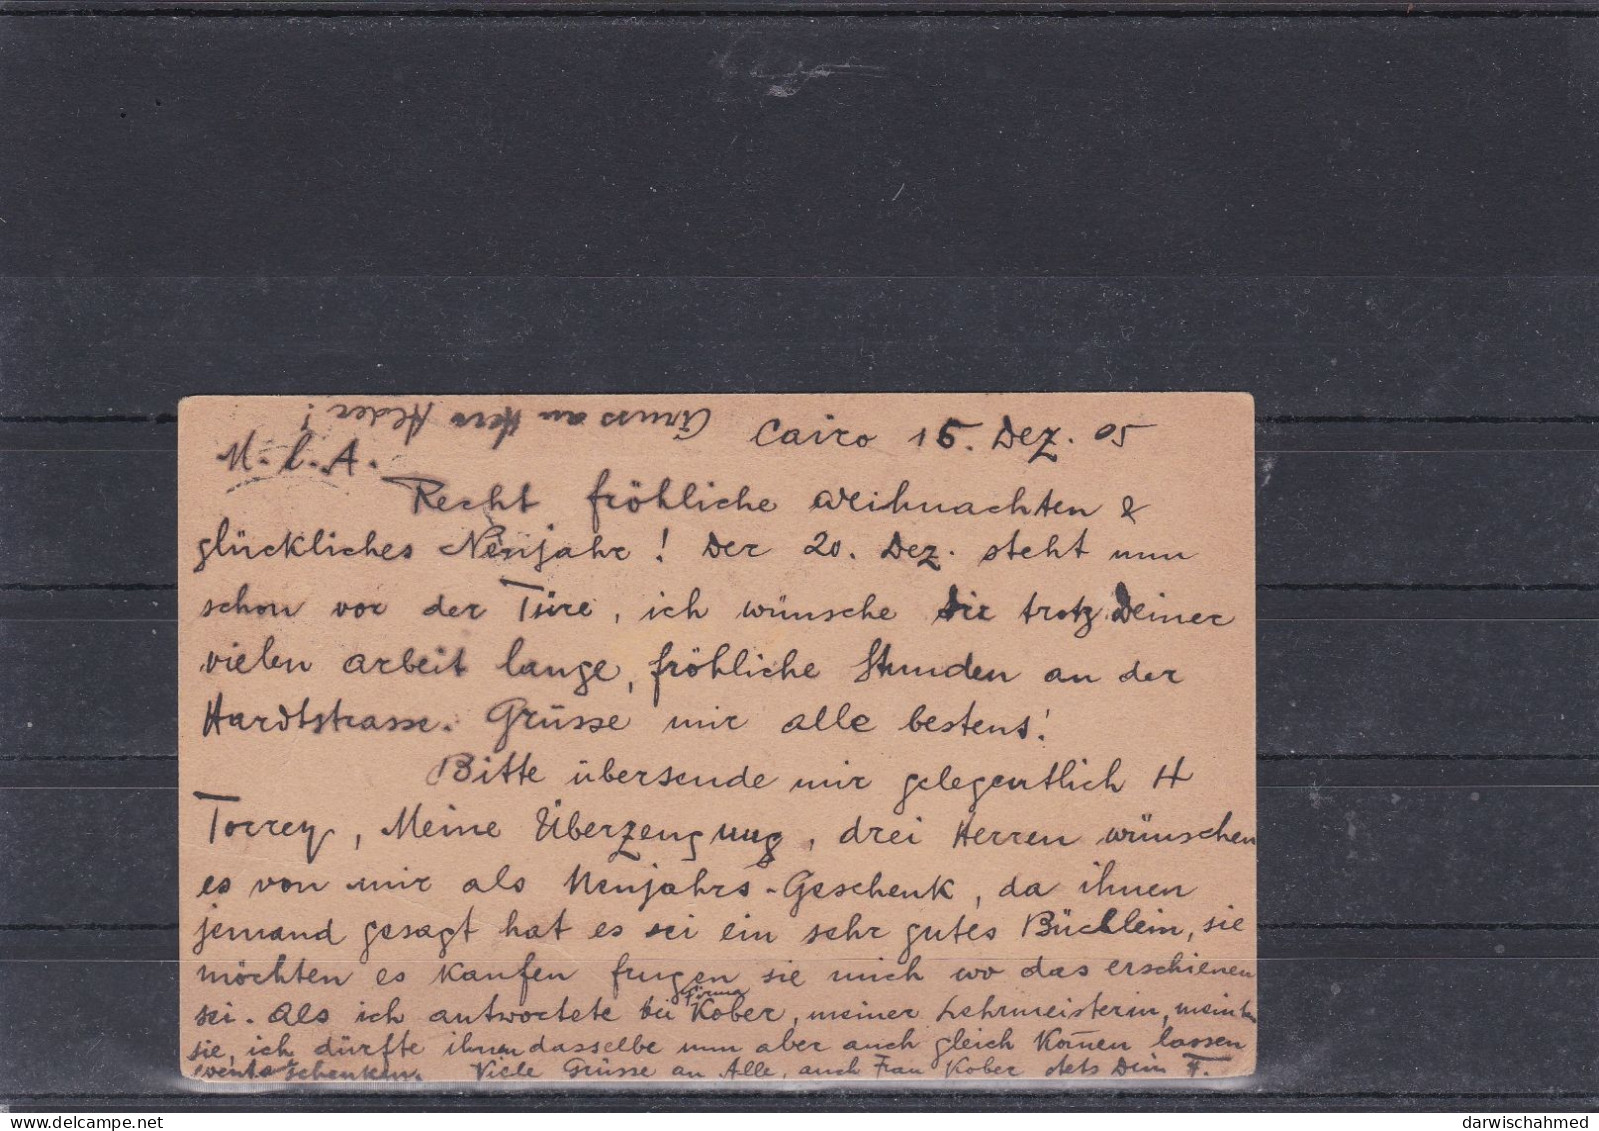 Gruss an Herr Alder!
Cairo 15. Dez. 05
M. l. A.
Recht fröhliche Weihnachten &
glückliches Neujahr! Der 20. Dez. steht nun
schon vor der Türe, ich wünsche Dir trotz Deiner
vielen Arbeit lange, fröhliche Stunden an der
Hardtstrasse. Grüsse mir alle bestens!
Bitte übersende mir gelegentlich H
Torrey, Meine Überzeugung, drei Herren wünschen
es von mir als Neujahrs-Geschenk, da ihnen
jemand gesagt hat es sei ein sehr gutes Büchlein, sie
möchten es kaufen frugen sie mich wo das erschienen
sei. Als ich antwortete bei Firma Kober, meiner Lehrmeisterin, meinten
sie, ich dürfte ihnen dasselbe nun aber auch gleich kom̄en lassen
schenken. Viele Grüsse an Alle, auch Frau Kober stets Dein F.
darwischahmed